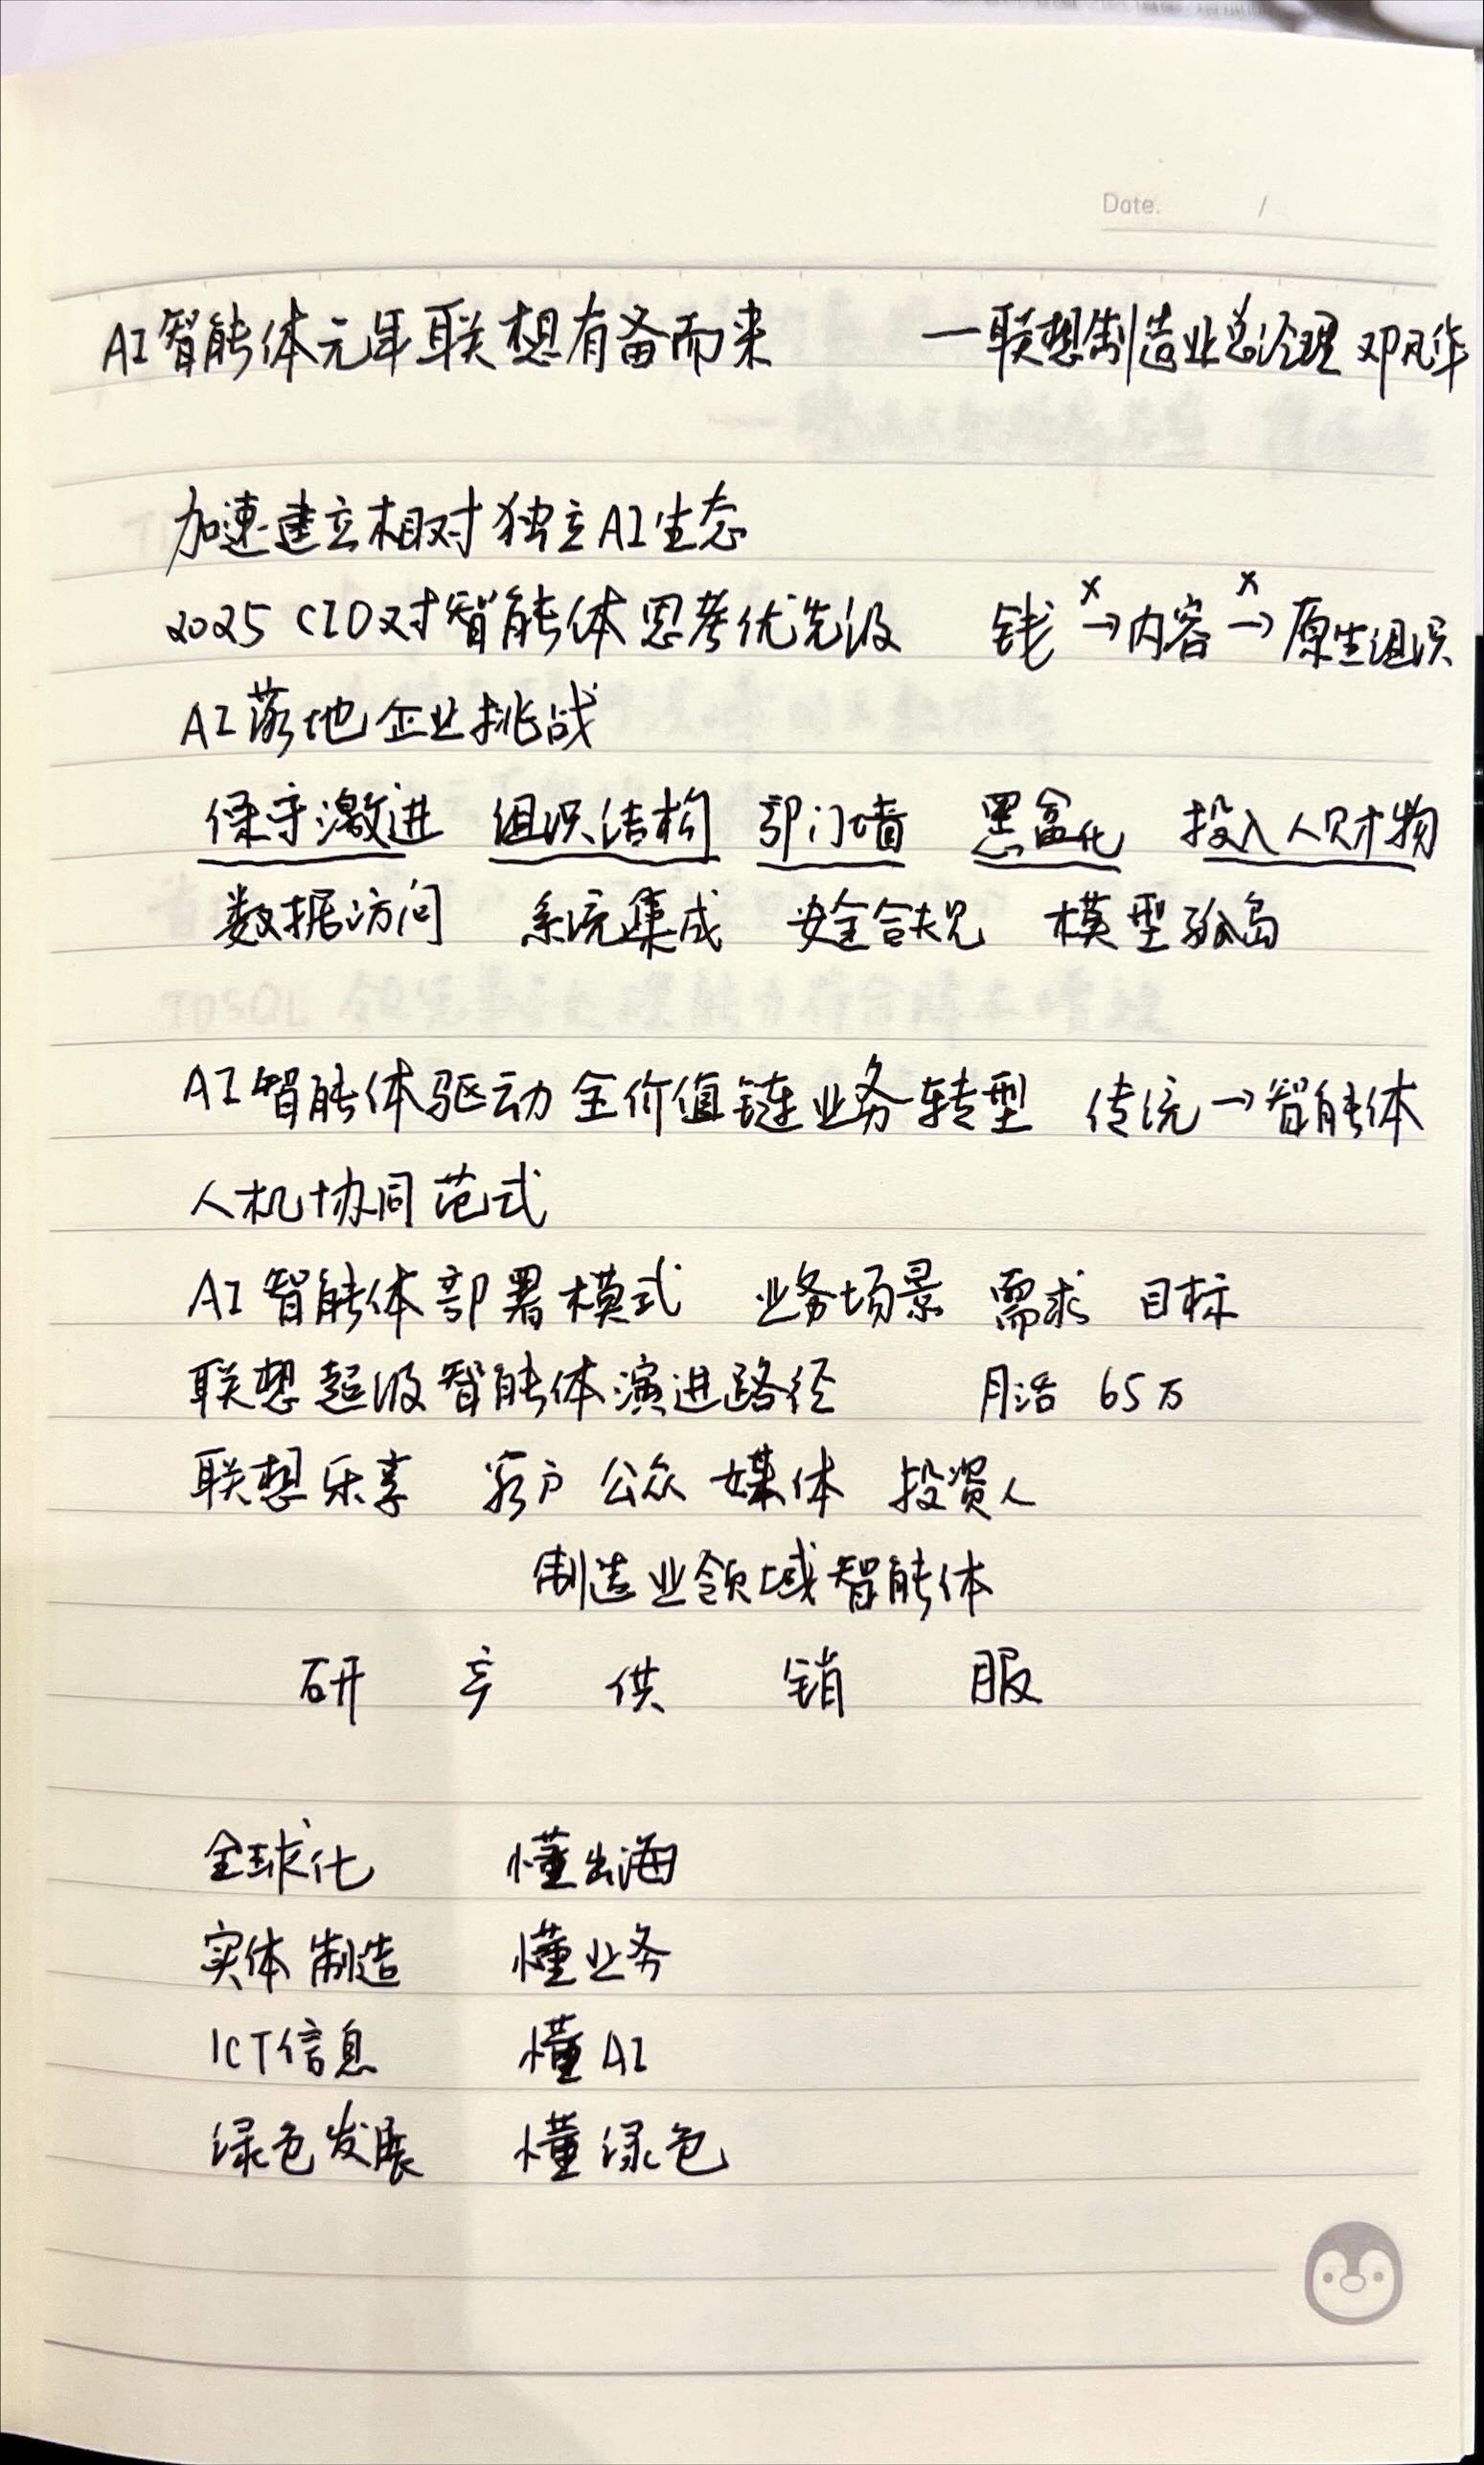 Date. /
AI智能体元年联想有备而来 —联想制造业总经理 邓凡华
加速建立相对独立AI生态
2025 CIO对智能体思考优先级 钱 x→ 内容 x→ 原生组织
AI落地企业挑战
保守激进 组织结构 部门墙 黑盒化 投入人财物
数据访问 系统集成 安全合规 模型孤岛
AI智能体驱动全价值链业务转型 传统→智能体
人机协同范式
AI智能体部署模式 业务场景 需求 目标
联想超级智能体演进路径 月活 65万
联想乐享 客户 公众 媒体 投资人
制造业领域智能体
研 产 供 销 服
全球化 懂出海
实体制造 懂业务
ICT信息 懂AI
绿色发展 懂绿色